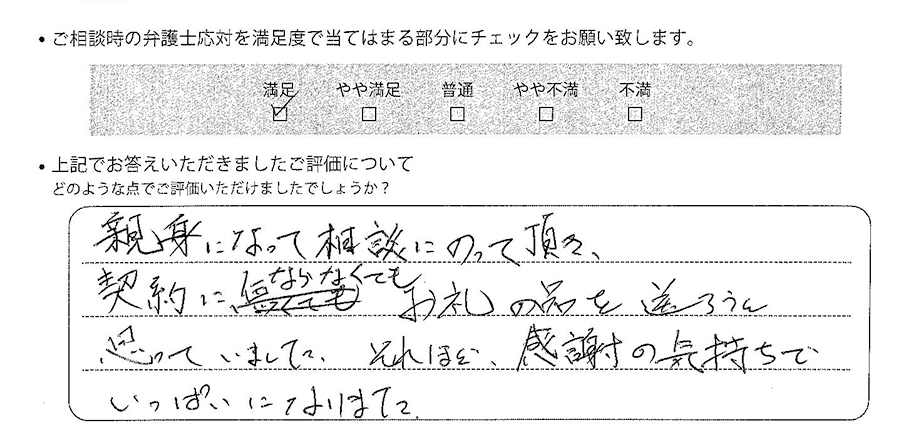 • ご相談時の弁護士応対を満足度で当てはまる部分にチェックをお願い致します。
満足 やや満足 普通 やや不満 不満
• 上記でお答えいただきましたご評価について
どのような点でご評価いただけましたでしょうか？
親身になって相談にのって頂き、
契約にならなくても お礼の品を送ろうと
思っていました。それほど、感謝の気持ちで
いっぱいになりました。